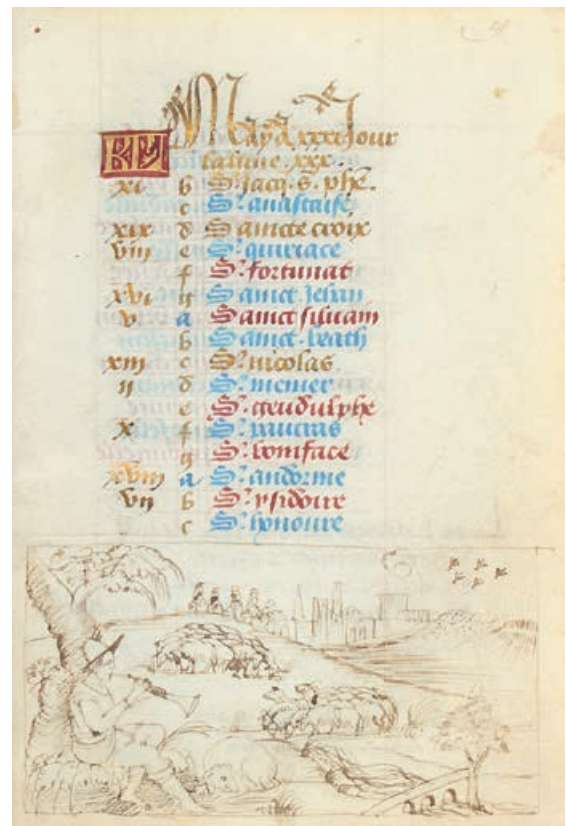 May a xxxi Jour
KL la lune .xxx.
xi b S. Jacq. S. phe.
c S. anastaise
xix d Saincte croix
viii e S. quiriace
f S. fortunat
xvi g Sainct Jehan
v a Sainct siluain
b Sainct beath
xiii c S. nicolas
ii d S. memer
e S. gendulphe
x f S. pancras
g S. boniface
xviii a S. andorme
vii b S. ysidoire
c S. honoure